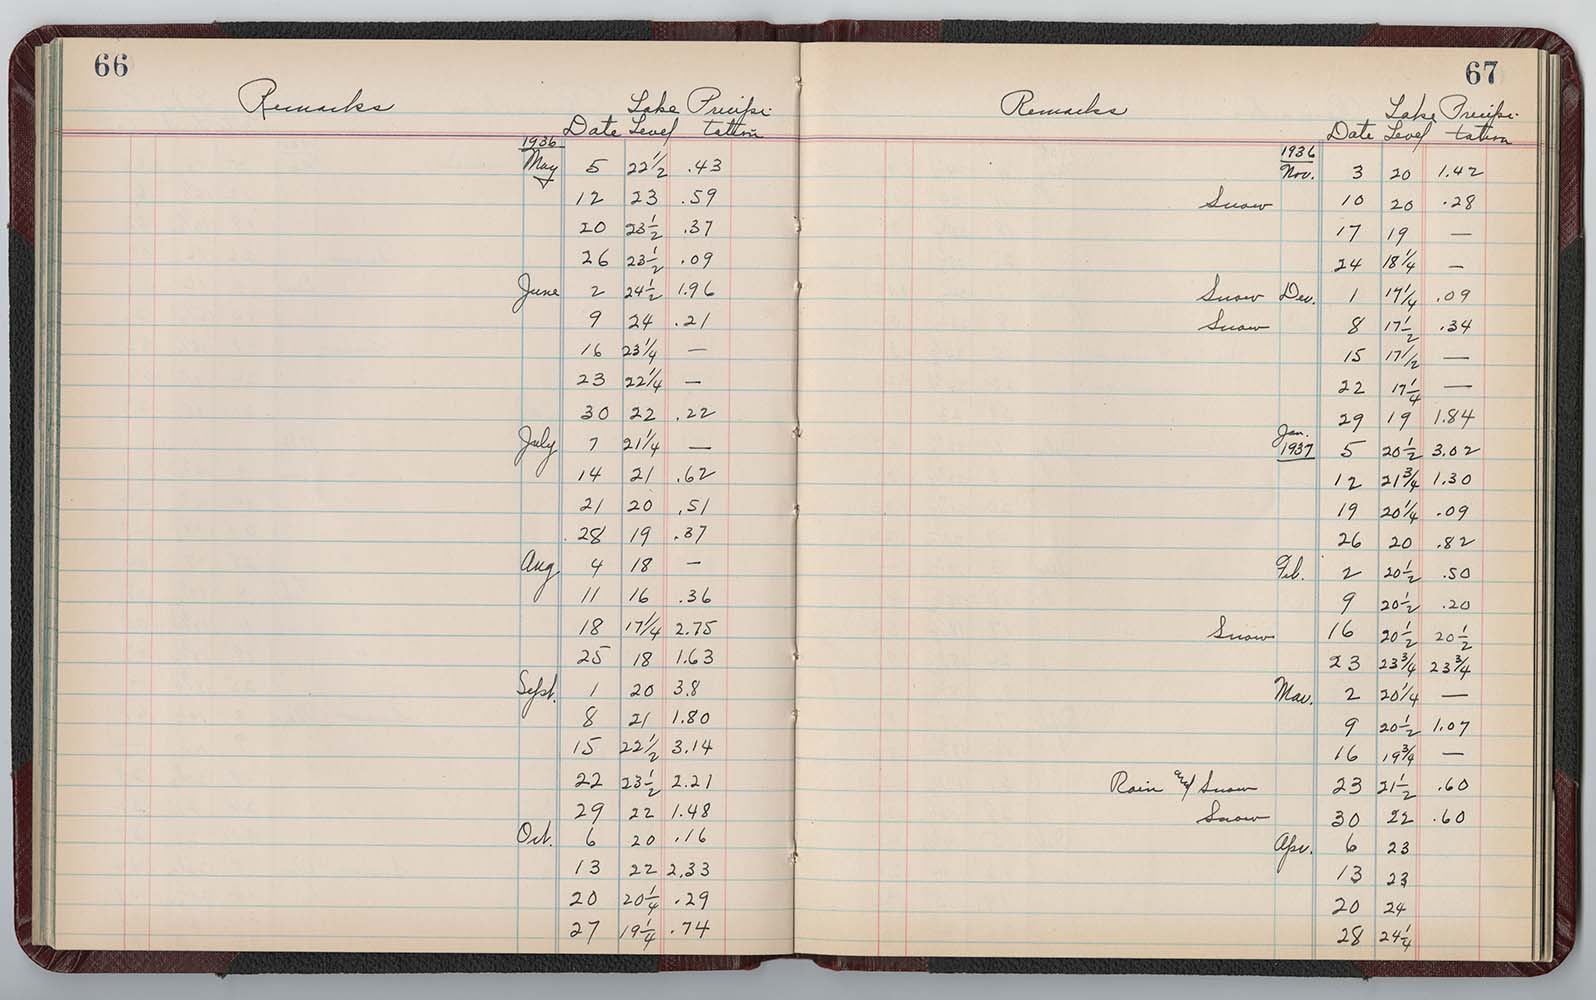 66
Remarks Date Lake Level Precipi-tation
1936
May 5 22 1/2 .43
12 23 .59
20 23 1/2 .37
26 23 1/2 .09
June 2 24 1/2 1.96
9 24 .21
16 23 1/4 —
23 22 1/4 —
30 22 .22
July 7 21 1/4 —
14 21 .62
21 20 .51
28 19 .37
Aug 4 18 —
11 16 .36
18 17 1/4 2.75
25 18 1.63
Sept. 1 20 3.8
8 21 1.80
15 22 1/2 3.14
22 23 1/2 2.21
29 22 1.48
Oct. 6 20 .16
13 22 2.33
20 20 1/4 .29
27 19 1/4 .74
67
Remarks Date Lake Level Precipi-tation
1936
Nov. 3 20 1.42
Snow 10 20 .28
17 19 —
24 18 1/4 —
Snow Dec. 1 17 1/4 .09
Snow 8 17 1/2 .34
15 17 1/2 —
22 17 1/4 —
29 19 1.84
Jan.
1937 5 20 1/2 3.02
12 21 3/4 1.30
19 20 1/4 .09
26 20 .82
Feb. 2 20 1/2 .50
9 20 1/2 .20
Snow 16 20 1/2 20 1/2
23 23 3/4 23 3/4
Mar. 2 20 1/4 —
9 20 1/2 1.07
16 19 3/4 —
Rain and Snow 23 21 1/2 .60
Snow 30 22 .60
Apr. 6 23
13 23
20 24
28 24 1/4